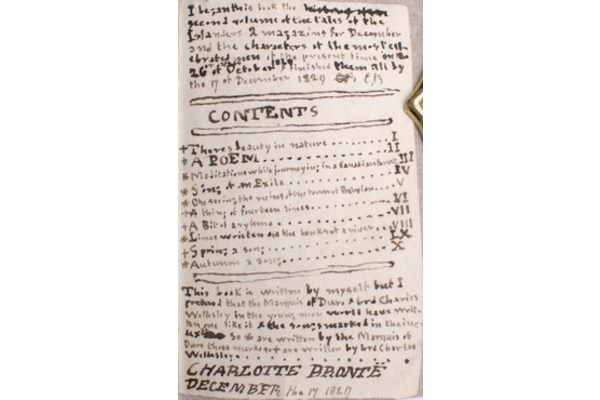 I began this book the
second volume of the tales of the
Islanders 2 magazins for December
and the characters of the most cel
ebrated men of the present time on the
26th of October 1829 & finished them all by
the 17 of December 1829 CB
CONTENTS
+ Theres beauty in nature .......... I
* A POEM .......... II
* Meditations while journeying in a Canadian forest III
* Song of an Exile .......... IV
* On seeing the ruins of the tower of Babylon .... V
+ A thing of fourteen lines .......... VI
+ A Bit of a rhyme .......... VII
* Lines written on the bank of a river .... VIII
+ Spring a song .......... IX
* Autumn a song .......... X
This book is written by myself but I
pretend that the Marquis of Duro & Lord Charles
Wellesley in the young men world have writt
en one like it & the songs marked in the in
dex so * are written by the Marquis of
Duro those marked so + are written by Lord Charles
Wellesley
CHARLOTTE BRONTË
DECEMBER the 17 1829